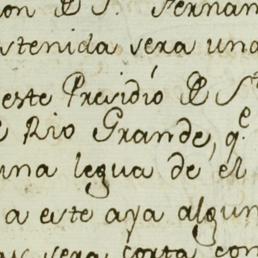 on D. S. Fernan
stenida sera una
este Presidió D S
Rio Grande, q.e
una legua de el
a este aya algun
sera corta con